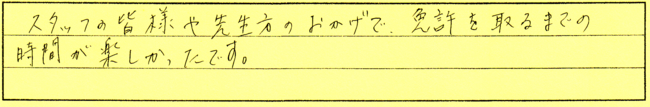 スタッフの皆様や先生方のおかげで、免許を取るまでの
時間が楽しかったです。